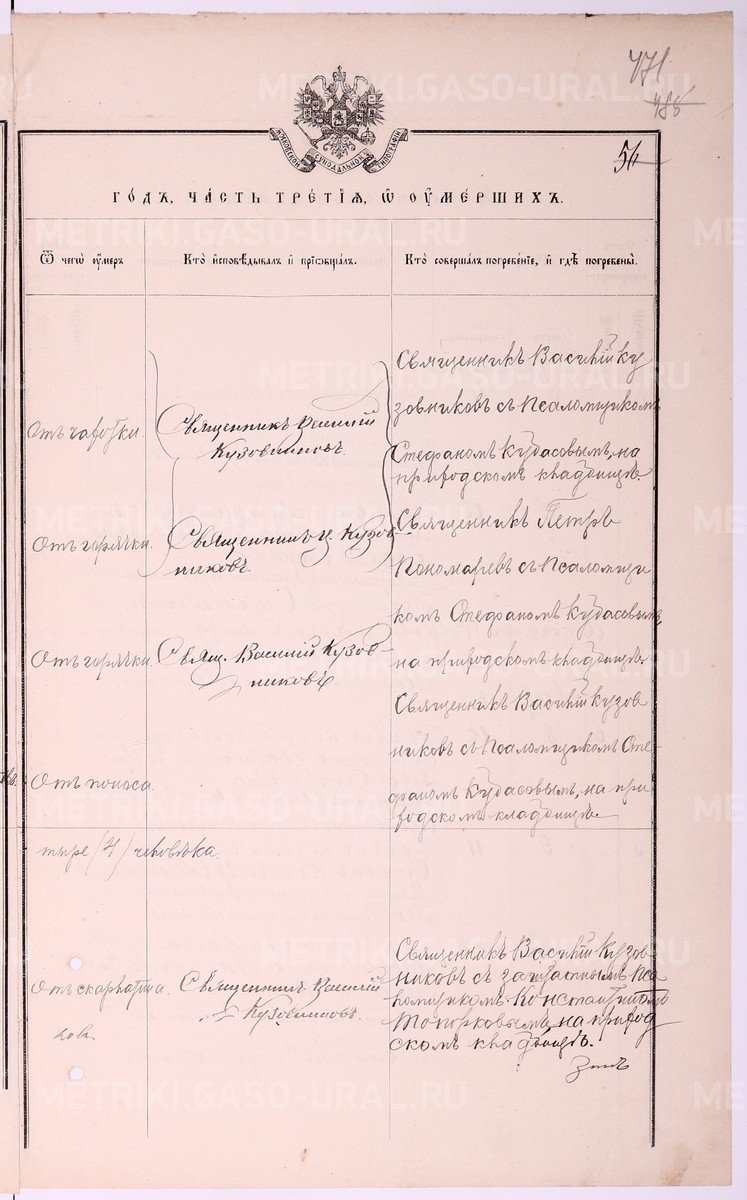 471
486
56
МОСКОВСКОЙ СѴНОДАЛЬНОЙ ТИПОГРАФІИ
ГОДЪ, ЧАСТЬ ТРЕТІЯ, Ѿ ОУМЕРШИХЪ.
Ѿ чегѡ оумеръ
Кто исповѣдывалъ и пріѡбщалъ.
Кто совершалъ погребеніе, и гдѣ погребены.
Священникъ Василій Ку
зовниковъ съ Псаломщикомъ
Отъ чахотки.
Священникъ Василій
Кузовниковъ.
Стефаномъ Кудасовымъ, на
приходскомъ кладбищѣ.
Отъ горячки.
Священникъ В. Кузов-
никовъ.
Священникъ Петръ
Пономаревъ съ Псаломщи
комъ Стефаномъ Кудасовымъ,
Отъ горячки.
Свящ. Василій Кузов-
никовъ
на приходскомъ кладбищѣ.
Священникъ Василій Кузов
никовъ съ Псаломщикомъ Сте-
Отъ поноса.
фаномъ Кудасовымъ, на при
ходскомъ кладбищѣ.
тыре (4) человѣка.
Отъ скарлатина
Священникъ Василій
Кузовниковъ.
Священникъ Василій Кузов
никовъ съ заштатнымъ Пса
ломщикомъ Константиномъ
Топорковымъ, на приход
скомъ кладбищѣ.
METRIKI.GASO-URAL.RU